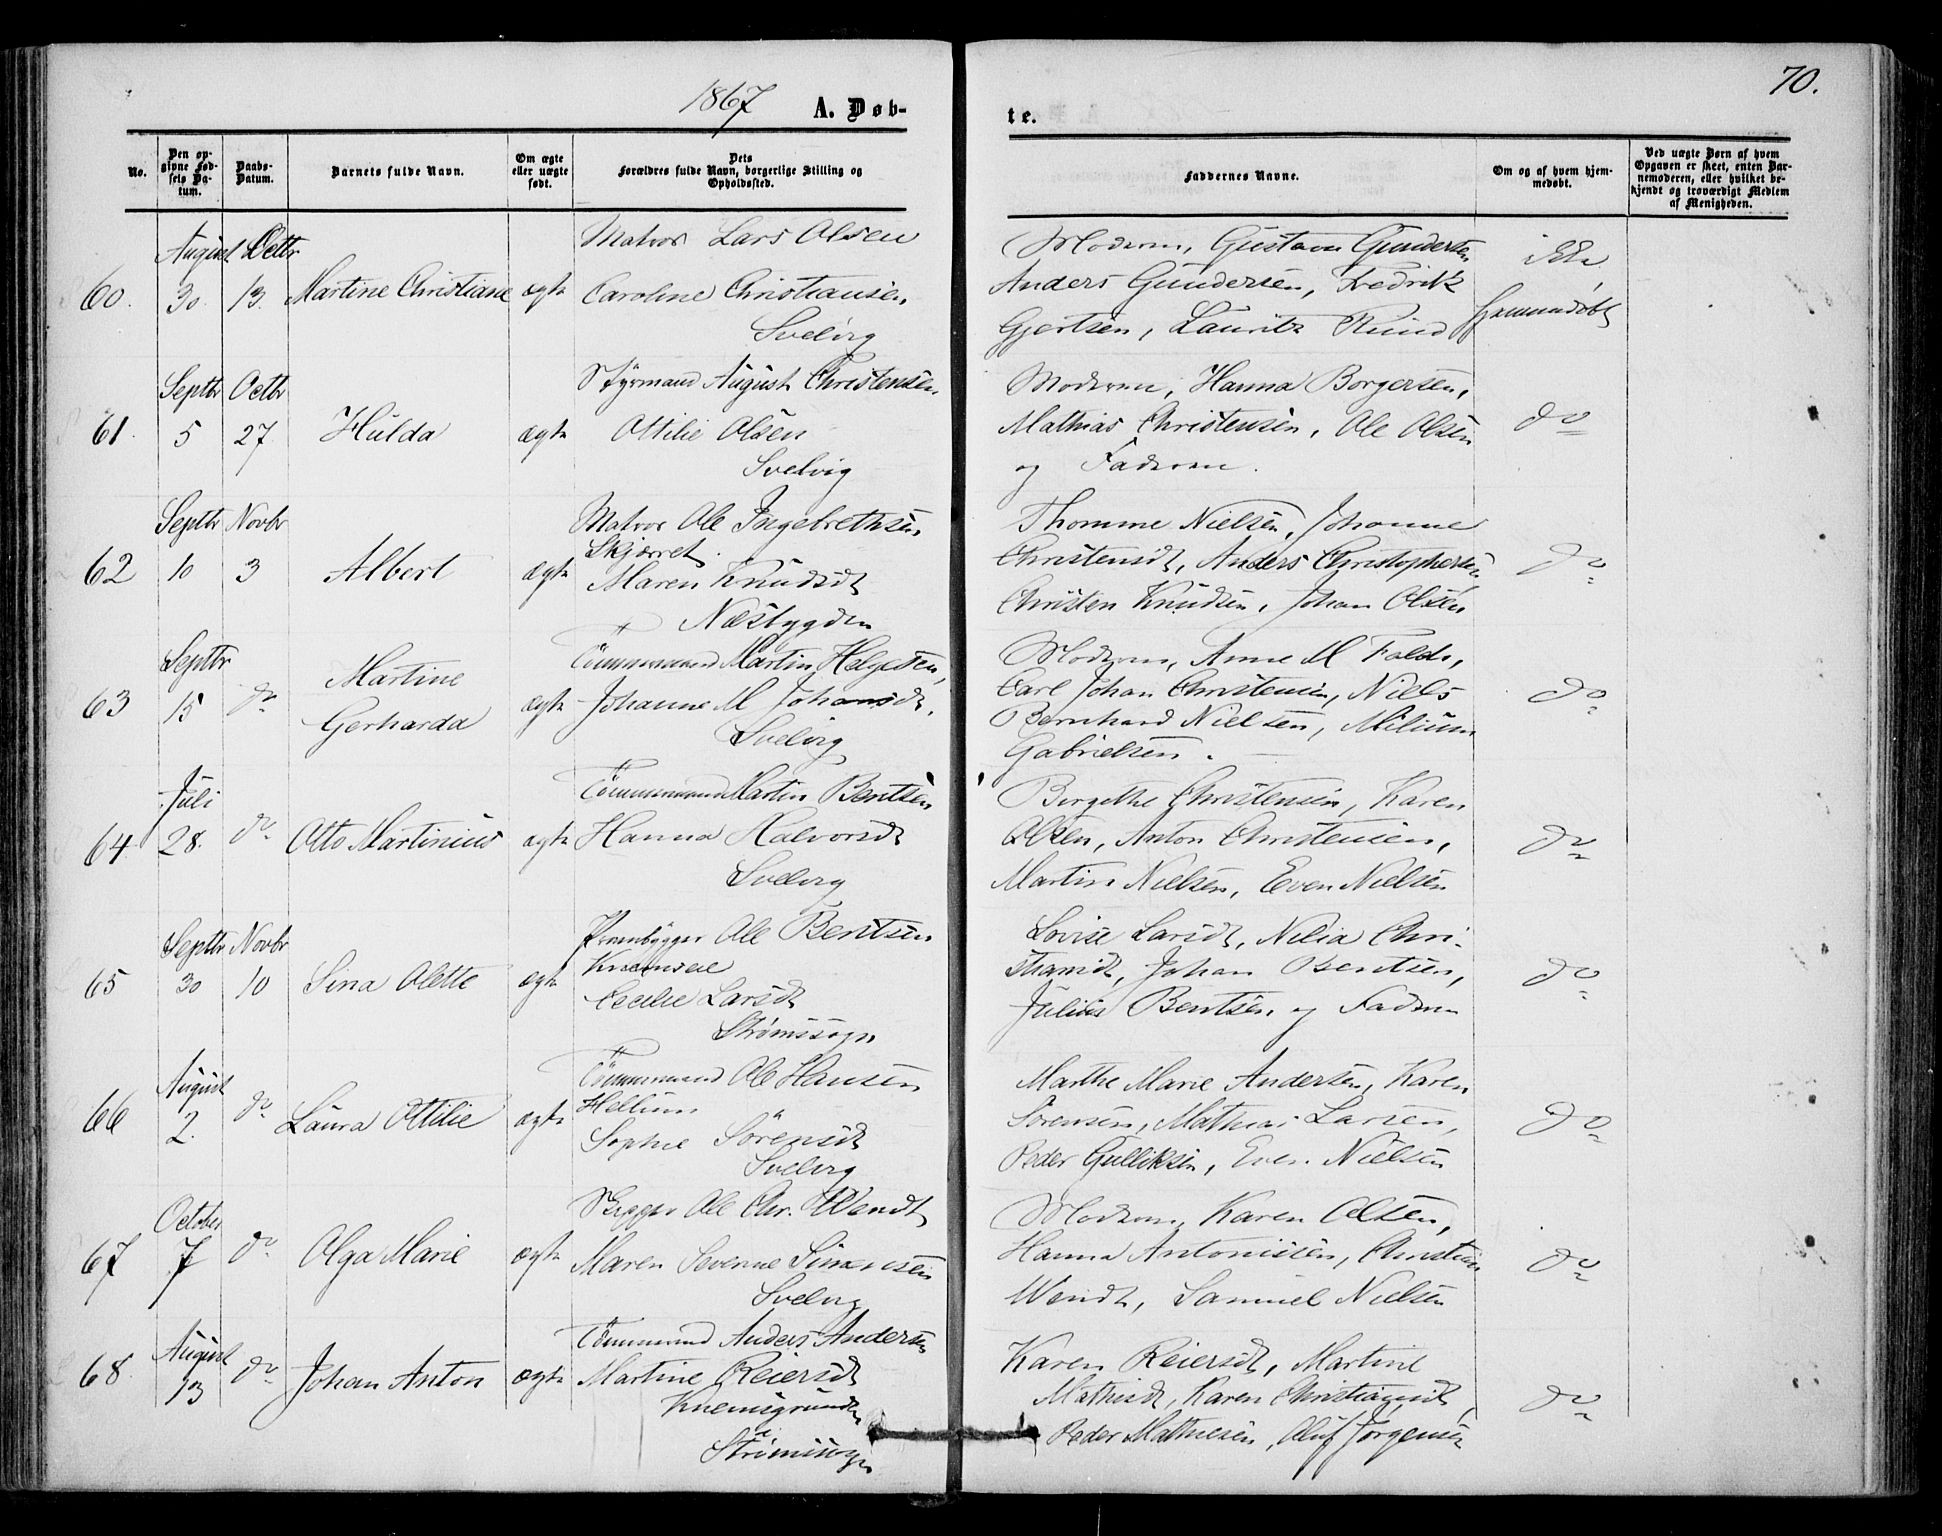 1867 A. Døb-
te. 70.
No.
Den op-
givne Fød-
sels Da-
tum.
Daabs-
Datum.
Barnets fulde Navn.
Om ægte
eller uægte
født.
Dets
Forældres fulde Navn, borgerlige Stilling og
Opholdssted.
Faddernes Navne.
Om og af hvem hjem-
medøbt.
Ved uægte Børn af hvem
Opgaven er skeet, enten Bar-
nemoderen, eller hvilket be-
kjendt og troværdigt Medlem
af Menigheden.
60.
August
30.
Octbr
13.
Martine Christiane
ægte
Matros Lars Olsen
Caroline Christiansen
Svelvig
Moderen, Gustava Gundersen
Anders Gundersen, Fredrik
Gjertsen, Lauritz
ikke
hjemmedøbt
61.
Septbr
5
Octbr
27
Hulda
ægte
Styrmand August Christensen
Ottilie Olsen
Svelvig
Moderen, Hanna Borgersen,
Mathias Christensen, Ole Olsen
og Faderen.
do
62
Septbr
10
Novbr
3
Albert
ægte
Matros Ole Ingebrethsen
Skjørret.
Maren Knudsdt
Næsbygden
Thomine Nielsen, Johanne
Christensdt, Anders Christophersen,
Christen Knudsen, Johan Olsen
do
63
Septbr
15
do
Martine
Gerharda
ægte
Tømmermand Martin Helgesen,
Johanne M Johansdt.
Svelvig
Moderen, Anne M Folds,
Carl Johan Christensen, Niels
Bernhard Nielsen, Milium
Gabrielsen.
do
64
Juli
28.
do
Otto Martinius
ægte
Tømmermand Martin Bentsen
Hanna Halvorsdt
Svelvig
Bergethe Christensen, Karen
Olsen, Anton Christensen,
Martin Nielsen, Even Nielsen
do
65
Septbr
30
Novbr
10
Sina Olette
ægte
Prambygger Ole Bentsen
Cecilie Larsdt
Strømssogn
Lovise Larsdt, Nilia Chri-
stiansdt, Johan Bentsen,
Julius Bentsen og Faderen
do
66
August
2.
do
Laura Ottilie
ægte
Tømmermand Ole Hansen
Hellum
Sophie Sørensdt
Svelvig
Marthe Marie Andersen, Karen
Sørensen, Mathias Larsen,
Peder Gulliksen, Even Nielsen
do
67
October
7
do
Olga Marie
ægte
Skipper Ole Chr. Wendt
Maren Severine Simensen
Svelvig
Moderen, Karen Olsen,
Hanna Antonisen, Christian
Wendt, Samuel Nielsen
do
68.
August
13
do
Johan Anton
ægte
Tømmermand Anders Andersen
Martine Reiersdt
Knemsgrunden
Strømssogn
Karen Reiersdt, Martine
Mathisdt, Karen Christiansdt,
Peder Mathiesen, Oluf Jørgensen
do